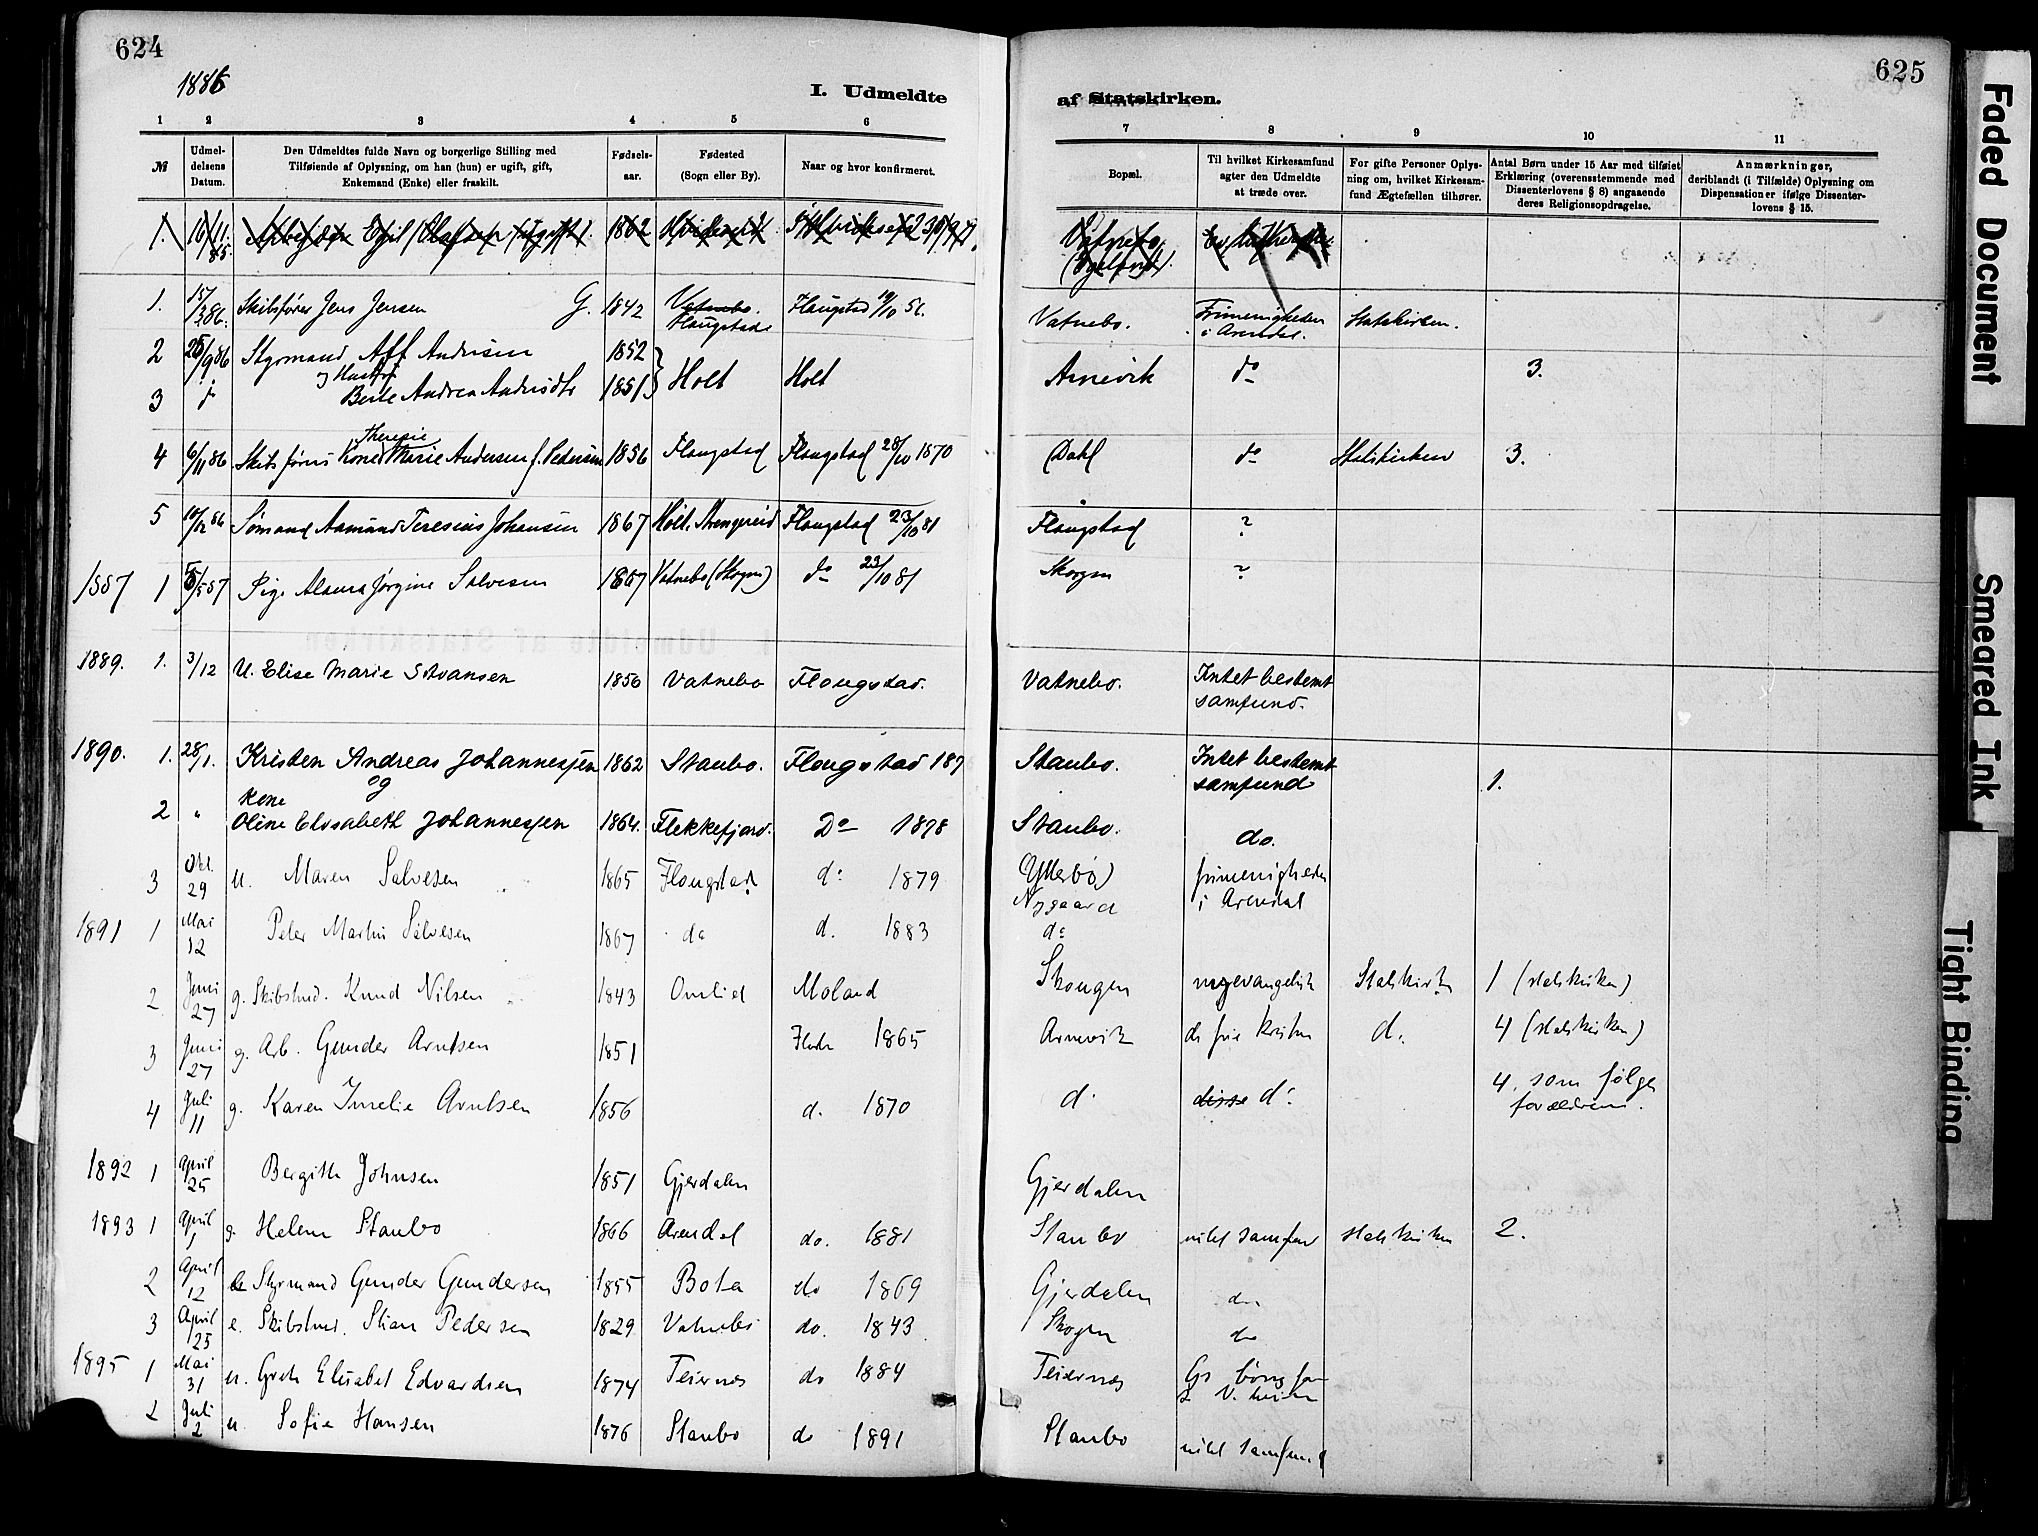 624
1886
I. Udmeldte
1 2 3 4 5 6
№ Udmel-delsens Datum. Den Udmeldtes fulde Navn og borgerlige Stilling med Tilføiende af Oplysning, om han (hun) er ugift, gift, Enkemand (Enke) eller fraskilt. Fødsels-aar. Fødested (Sogn eller By). Naar og hvor konfirmeret.
1. 16/11 85. 1862
1. 15/3 86. Skibsfører Jens Jensen G. 1842 Vatnebo. Flaugstad Flaugstad 19/10 56.
2 25/9 86 Styrmand Andersen 1852
og Hustru
3 Berte Andrea Andersdtr 1851 Holt Holt
Theresie
4 6/11 86 Skibsførers Kone Marie Andersen f. Pedersen 1856 Flaugstad Flaugstad 28/10 1870
5 10/12 86 Sømand Aamund Teresius Johansen 1867 Holt. Flaugstad 23/10 81
1887 1 5/5 87 Pige Alaura Jørgine Salvesen 1867 Vatnebo (Skogen) do 23/10 81
1889. 1. 3/12 U. Elise Marie Stvansen 1856 Vatnebo Flougstad.
1890. 1. 28/1. Kristen Andreas Johannessen 1862 Staubo. Flougstad 187
og
Kone
2 " Oline Elisabeth Johannessen 1864. Flekkefjord. Do 1878
3 Okt. 29 u. Maren Salvesen 1865 Flougstad do 1879
1891 1 Mai 12 Peter Martin Salvesen 1867 do d. 1883
2 Juni 27 g. Skibstmd. Knud Nilsen 1843 Omlid Moland
3 Juni 27 g. Arb. Gunder Arntsen 1851 1865
4 Juli 11 g. Karen Imelie Arntsen 1856 d. 1870
1892 1 April 25 Bergith Johnsen 1851 Gjerdalen
1893 1 April 1 g. Helene Staubo 1866 Arendal do. 1881
2 April 12 Styrmand Gunder Gundersen 1855 Bota do 1869
3 April 25 e. Skibstmd. Stian Pedersen 1829 Vatnebo do. 1843
1895 1 Mai 31 u. Greth Elisabet Edvardsen 1874 Teiernes do 1884
2 Juli 2 u. Sofie Hansen 1876 Staubo do 1891
625
af Statskirken.
7 8 9 10 11
Bopæl. Til hvilket Kirkesamfund agter den Udmeldte at træde over. For gifte Personer Oplys-ning om, hvilket Kirkesam-fund Ægtefællen tilhører. Antal Børn under 15 Aar med tilføiet Erklæring (overensstemmende med Dissenterlovens § 8) angaaende deres Religionsopdragelse. Anmærkninger, deriblandt (i Tilfælde) Oplysning om Dispensationer ifølge Dissenter-lovens § 15.
Vatnebo
Vatnebo. Frimenigheden i Arendal. Statskirken.
Arnevik do 3.
Dahl do Statskirken 3.
Flaugstad ?
Skogen ?
Vatnebo. Intet bestemt samfund.
Staubo. Intet bestemt samfund 1.
Staubo. do.
Ytterbø Nygaard frimenigheden i Arendal
do
Skougen Statskirk 1 (statskirken)
Arnevik de frie kristne d. 4 (statskirken)
d. disse do 4. som følger forældrene.
Gjerdalen
Staubo intet samfund statskirken 2.
Gjerdalen do
Skogen do
Teiernes
Staubo intet samfund
Faded Document
Smeared Ink
Tight Binding